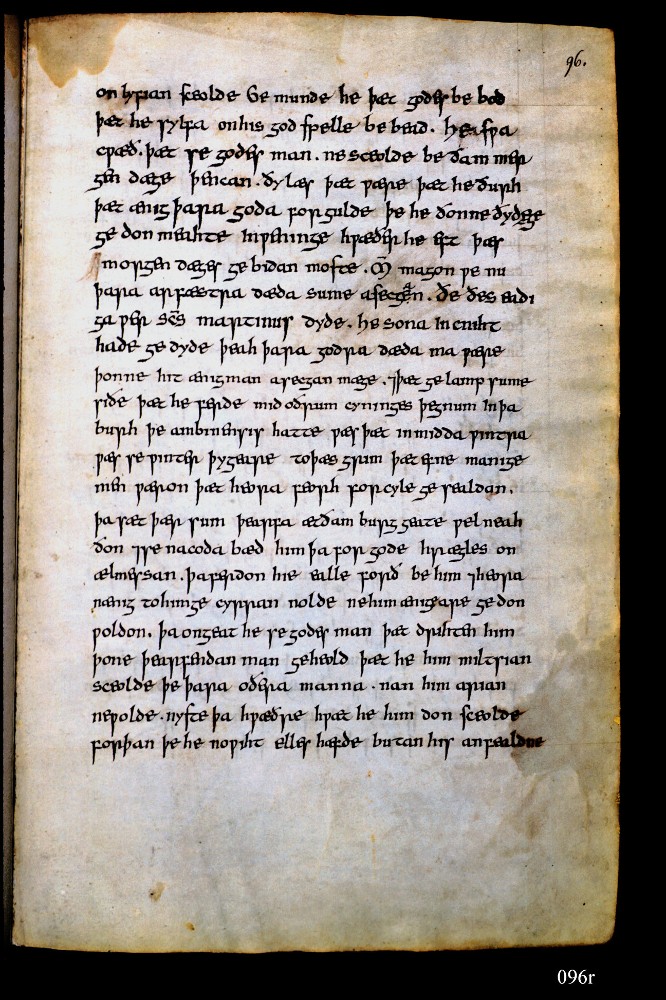 96.
onhyrian sceolde Ge munde he þæt godes be bod
þæt he sylfa onhis god spelle be bead. He swa
cwæð. þæt se godes man. ne sceolde be ðam mer
gen dæge þencan. ðy læs þæt wære þæt he ðurh
þæt ænig þara goda forgulde þe he ðonne ðydæge
ge don meahte
morgen dæges ge bidan moste. magon we nu
þara arfæstra dæda sume asecgan. ðe ðes eadi
ga wer scs martinus dyde. he sona in cniht
hade ge dyde þeah þara godra dæda ma wære
þonne hit ænigman asecgan mæge. ⁊þæt ge lamp sume
siðe þæt he ferde mid oðrum cyninges þegnum in þa
burh þe ambinensis hatte wæs þæt inmidda wintra
wæs se winter þygeare toþæs grim þæt efne manige
men wæron þæt heora feorh for cyle ge sealdan.
þa sæt þær sum þearfa ætðam burg geate wel neah
don ⁊se nacoda bæd him þa for gode hrægles on
ælmessan. þa ferdon hie ealle forð be him ⁊heora
nænig tohimge cyrran nolde nehim ænigeare ge don
woldon. þa ongeat he se godes man þæt drihten him
þone þearfendan man geheold þæt he him miltsian
sceolde þe þara oðera manna. nan him arian
newolde. nyste þa hwæðre hwæt he him don sceolde
forþan þe he nowiht elles hæfde butan his anfealdne
096r